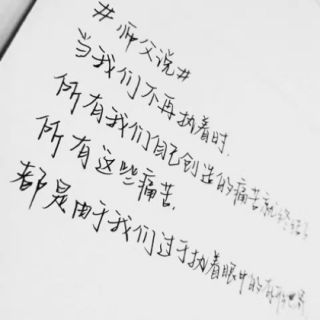 #师父说#
当我们不再执着时.
所有我们自己创造的痛苦就终结
所有这些痛苦.
都是由于我们过于执着眼中的有形世界